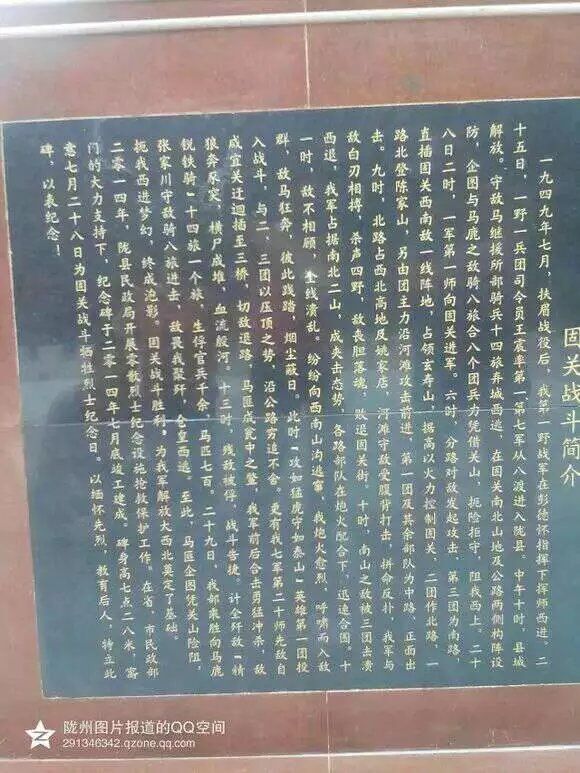 固关战斗简介
一九四九年七月，扶眉战役后，我第一野战军在彭德怀指挥下挥师西进。二
十五日，一野一兵团司令员王震率第一、第七军从八渡进入陇县。中午十时，县城
解放。守敌马继援所部骑兵十四旅弃城西逃，在固关南北山地及公路两侧构阵设
防，企图与马鹿之敌骑八旅合八个团兵力凭借关山，扼险拒守，阻我西上。二十
八日二时，一军第一师向固关进军。六时，分路对敌发起攻击，第三团为南路，
直插固关西南敌一线阵地，占领玄寿山，据高以火力控制固关，二团作北路，一
路北登陈家山，另由团主力沿河滩攻击前进，第一团及其余部队为中路，正面出
击。九时，北路占西北高地及姚家店，河滩守敌受腹背打击，拼命反扑，我军与
敌白刃相搏，杀声四野，敌丧胆落魂，败退固关街，十时，南山之敌被三团击溃
西退，我军占据南北二山，成夹击态势，各路部队在炮火配合下，迅速合围。十
一时，敌不相顾，全线溃乱。纷纷向西南山沟逃窜，我炮火愈烈，呼啸而入敌
群，敌马狂奔，彼此践踏，烟尘蔽日。此时"攻如猛虎守如泰山"英雄第一团投
入战斗，与二、三团以压顶之势，沿公路穷追不舍。更有我七军第二十师先敌自
咸宜关迂迴插至三桥，切敌退路，马匪成瓮中之鳖，我军前后合击勇猛冲杀，敌
狼奔豕突，横尸成堆，血流殷河。十三时，残敌被俘，战斗告捷。计全歼敌"精
锐铁骑"十四旅一个旅，生俘官兵千余，马匹七百。二十九日，我部乘胜向马鹿
张家川守敌骑八旅进击，敌畏我聚歼，仓皇西逃。至此，马匪企图凭关山险阻，
扼我西进梦幻，终成泡影。固关战斗胜利，为我军解放大西北奠定了基础。
二零一四年，陇县民政局开展零散烈士纪念设施抢救保护工作，在省、市民政部
门的大力支持下，纪念碑于二零一四年七月底竣工建成。碑身高七点二八米，寓
意七月二十八日为固关战斗牺牲烈士纪念日。以缅怀先烈，教育后人，特立此
碑，以表纪念！
陇州图片报道的QQ空间
291346342.qzone.qq.com